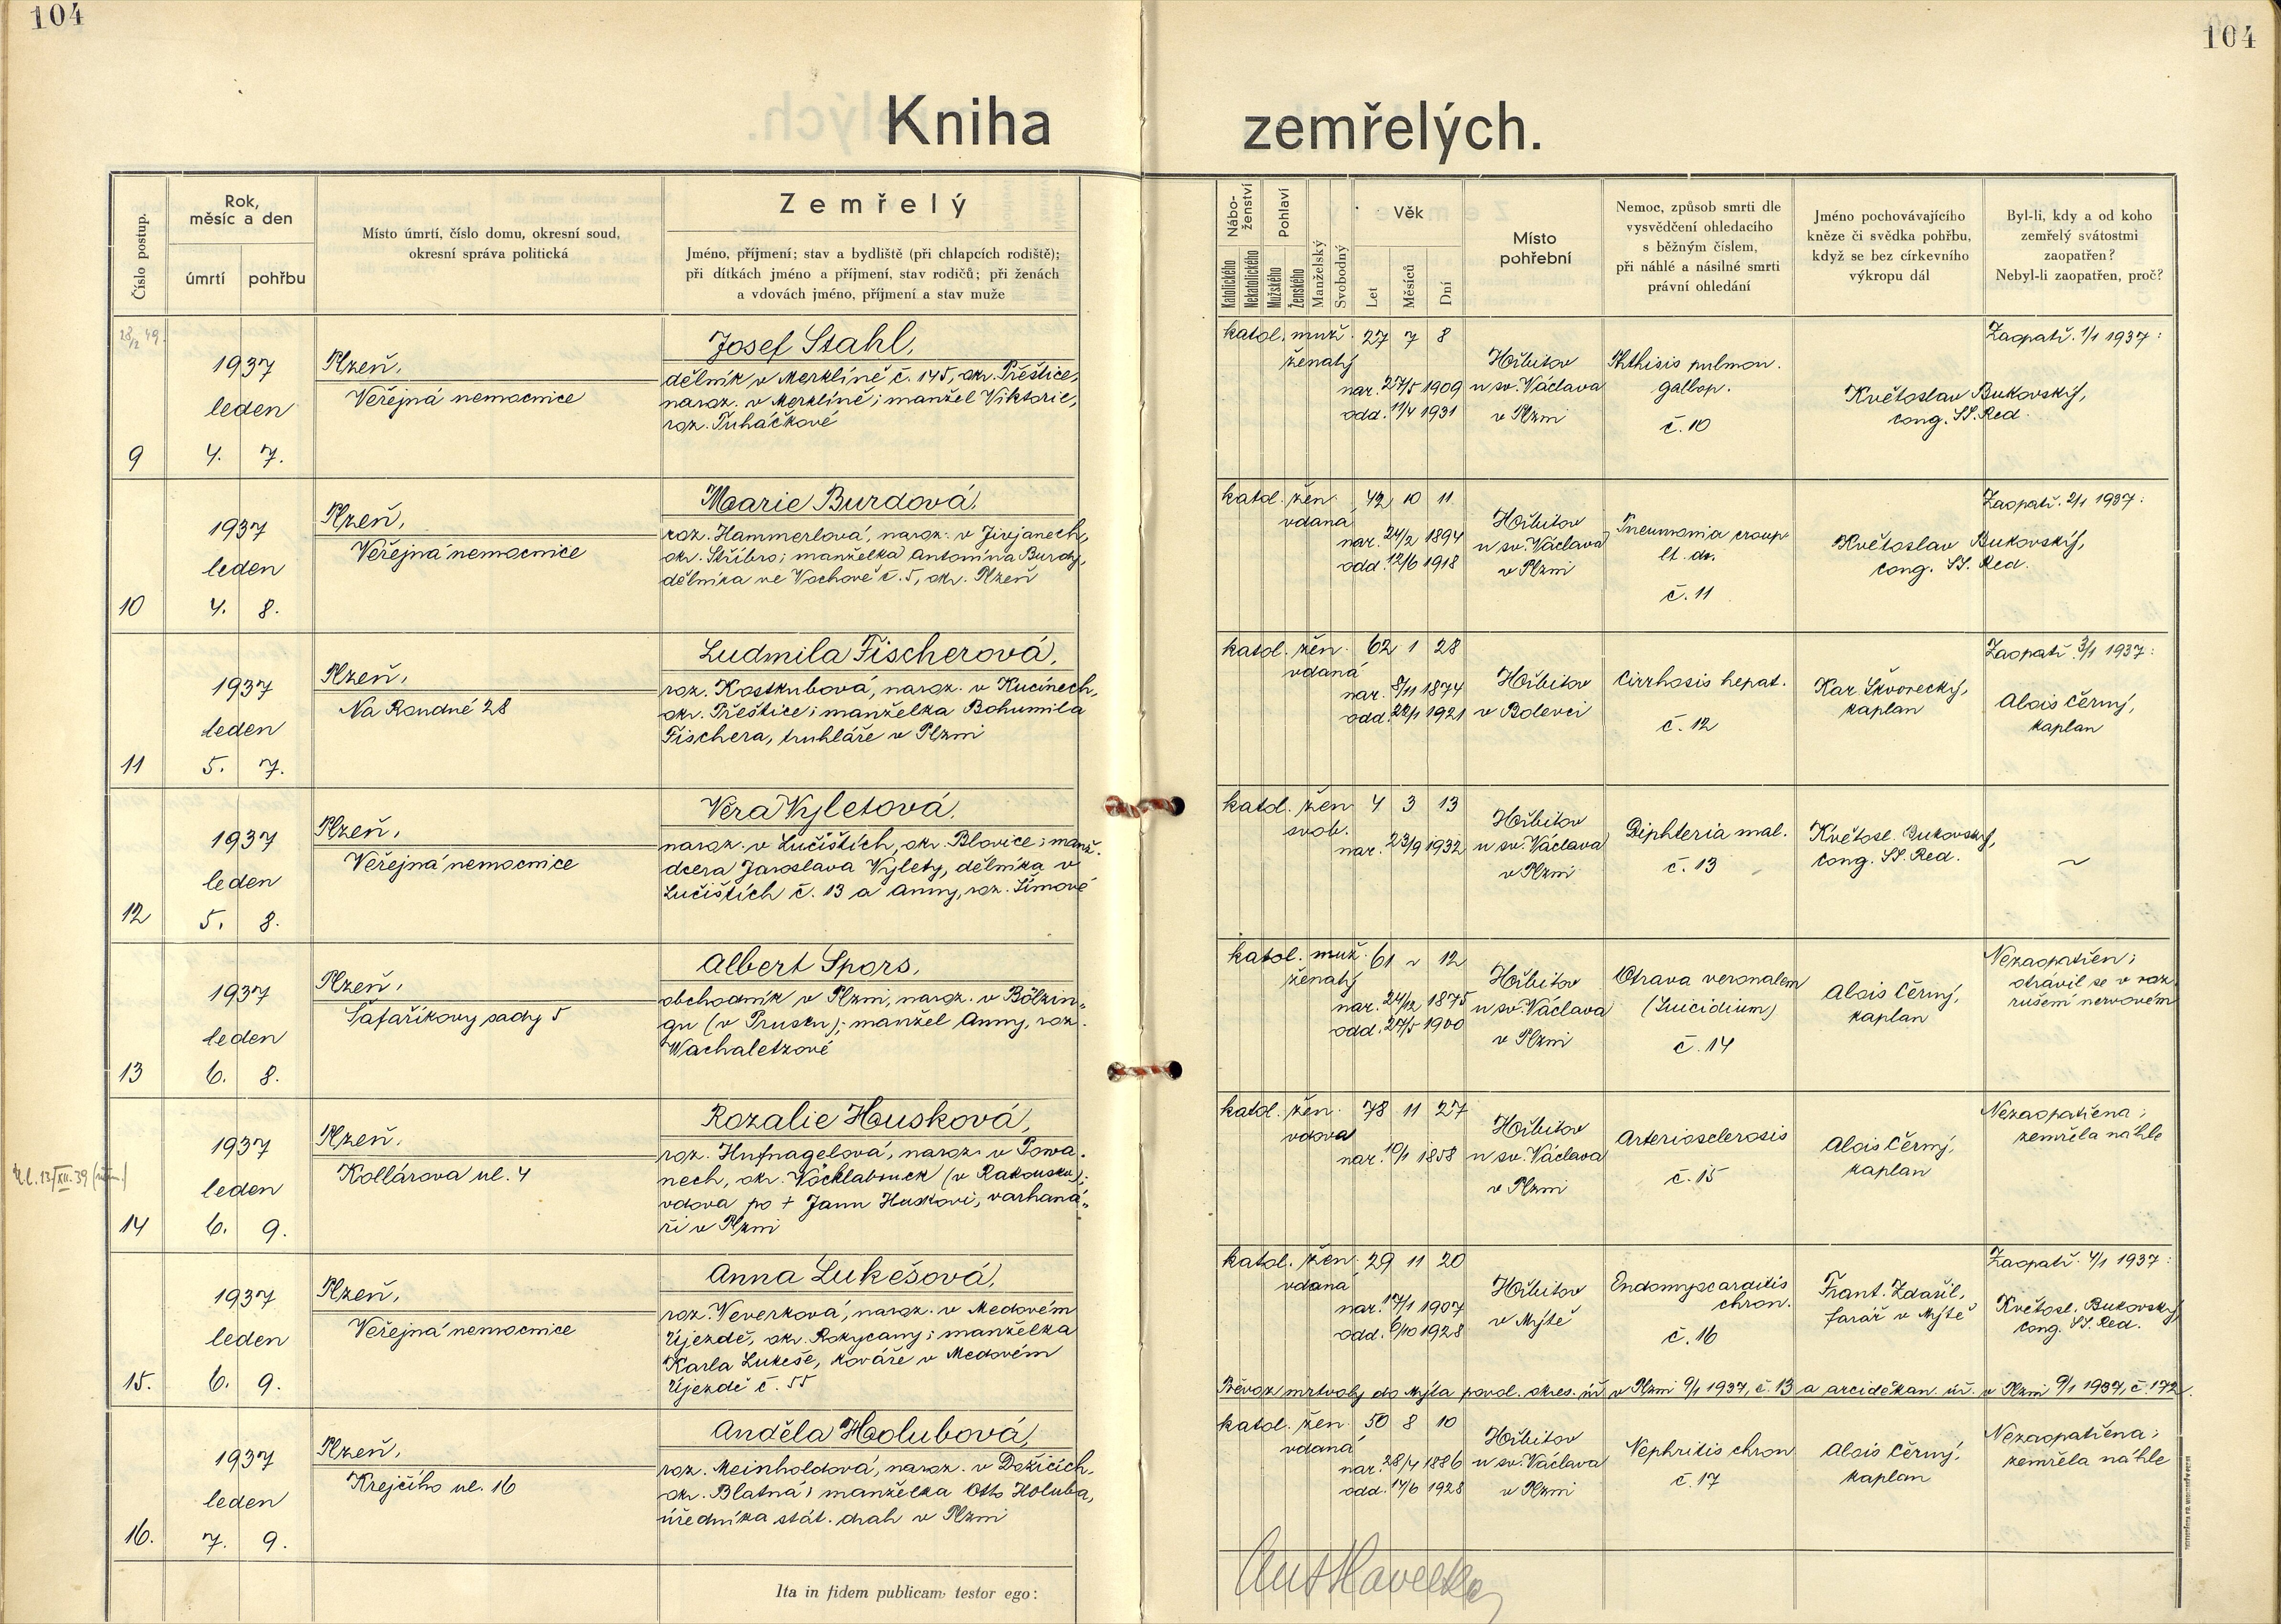 104
104
Kniha zemřelých.
Číslo postup.
Rok,
měsíc a den
úmrtí
pohřbu
Místo úmrtí, číslo domu, okresní soud,
okresní správa politická
Zemřelý
Jméno, příjmení; stav a bydliště (při chlapcích rodiště);
při dítkách jméno a příjmení, stav rodičů; při ženách
a vdovách jméno, příjmení a stav muže
Nábo-
ženství
Katolického
Nekatolického
Pohlaví
Mužského
Ženského
Manželský
Svobodný
Věk
Let
Měsíců
Dní
Místo
pohřební
Nemoc, způsob smrti dle
vysvědčení ohledacího
s běžným číslem,
při náhlé a násilné smrti
právní ohledání
Jméno pochovávajícího
kněze či svědka pohřbu,
když se bez církevního
výkropu dál
Byl-li, kdy a od koho
zemřelý svátostmi
zaopatřen?
Nebyl-li zaopatřen, proč?
28/2 49.
9
1937
leden
4. 7.
Plzeň,
Veřejná nemocnice
Josef Stahl,
dělník v Merklíně č. 145, okr. Přeštice,
naroz. v Merklíně; manžel Viktorie,
roz. Tuháčkové
katol. muž. 27 7 8
ženatý
nar. 27/5 1909
odd. 11/4 1931
Hřbitov
u sv. Václava
v Plzni
Phthisis pulmon.
gallop.
č. 10
Zaopatř. 1/1 1937:
Květoslav Bukovský,
cong. SS. Red.
10
1937
leden
4. 8.
Plzeň,
Veřejná nemocnice
Marie Burdová,
roz. Hammerlová, naroz. v Jivjanech,
okr. Stříbro; manželka Antonína Burdy,
dělníka ve Vochově č. 5, okr. Plzeň
katol. žen. 42 10 11
vdaná
nar. 24/2 1894
odd. 12/6 1918
Hřbitov
u sv. Václava
v Plzni
Pneumonia croup
lt. dx.
č. 11
Zaopatř. 2/1 1937:
Květoslav Bukovský,
cong. SS. Red.
11
1937
leden
5. 7.
Plzeň,
Na Roudné 28
Ludmila Fischerová,
roz. Kostkubová, naroz. v Kucínech,
okr. Přeštice; manželka Bohumila
Fischera, truhláře v Plzni
katol. žen. 62 1 28
vdaná
nar. 8/11 1874
odd. 22/1 1921
Hřbitov
v Bolevci
Cirrhosis hepat.
č. 12
Kar. Škvorecký,
kaplan
Zaopatř. 3/1 1937:
Alois Černý,
kaplan
12
1937
leden
5. 8.
Plzeň,
Veřejná nemocnice
Věra Vyletová,
naroz. v Lučištích, okr. Blovice; manž.
dcera Jaroslava Vylety, dělníka v
Lučištích č. 13 a Anny, roz. Šímové
katol. žen 4 3 13
svob.
nar. 23/9 1932
Hřbitov
u sv. Václava
v Plzni
Diphteria mal.
č. 13
Květosl. Bukovský,
cong. SS. Red.
~
13
1937
leden
6. 8.
Plzeň,
Šafaříkovy sady 5
Albert Spors,
obchodník v Plzni, naroz. v Bölzin„
gu (v Prusku); manžel Anny, roz.
Wachaletzové
katol. muž. 61 ~ 12
ženatý
nar. 24/12 1875
odd. 27/5 1900
Hřbitov
u sv. Václava
v Plzni
Otrava veronalem
(Suicidium)
č. 14
Alois Černý,
kaplan
Nezaopatřen;
otrávil se v roz
rušení nervovém
Ul. 13/XII. 39
14
1937
leden
6. 9.
Plzeň.
Kollárova ul. 4
Rozalie Housková,
roz. Hufnagelová, naroz. v Powa.
nech, okr. Vöcklabruck (v Rakousku);
vdova po † Janu Huskovi, varhaná„
ři v Plzni
katol. žen. 78 11 27
vdova
nar. 10/1 1858
Hřbitov
u sv. Václava
v Plzni
Arteriosclerosis
č. 15
Alois Černý,
kaplan
Nezaopatřena;
zemřela náhle
15.
1937
leden
6. 9.
Plzeň,
Veřejná nemocnice
Anna Lukešová,
roz. Veverková, naroz. v Medovém
Újezdě, okr. Rokycany; manželka
Karla Lukeše, kováře v Medovém
Újezdě č. 55
katol. žen. 29 11 20
vdaná
nar. 17/1 1907
odd. 6/10 1928
Hřbitov
v Mýtě
Endomyocarditis
chron.
č. 16
Frant. Zdařil,
farář v Mýtě
Zaopatř. 4/1 1937:
Květosl. Bukovský
cong. SS. Red.
Převoz mrtvoly do Mýta povol. okres. úř. v Plzni 9/1 1937, č. 13 a arciděkan. úř. v Plzni 9/1 1937, č. 172.
16.
1937
leden
7. 9.
Plzeň,
Krejčího ul. 16
Anděla Holubová,
roz. Meinholdová, naroz. v Dožicích,
okr. Blatná; manželka Otto Holuba,
úředníka stát. drah v Plzni
katol. žen. 50 8 10
vdaná
nar. 28/4 1886
odd. 17/6 1928
Hřbitov
u sv. Václava
v Plzni
Nephritis chron
č. 17
Alois Černý,
kaplan
Nezaopatřena;
zemřela náhle
Ita in fidem publicam testor ego: